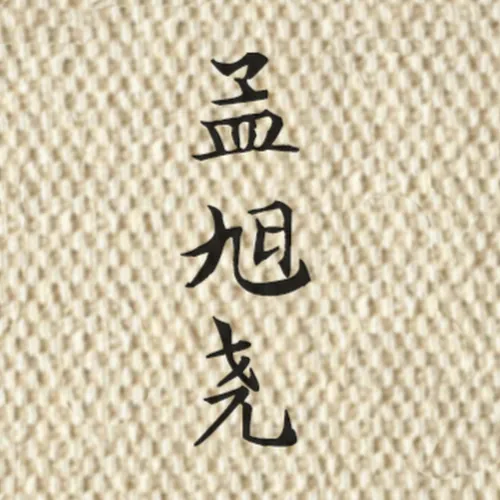 孟旭尧